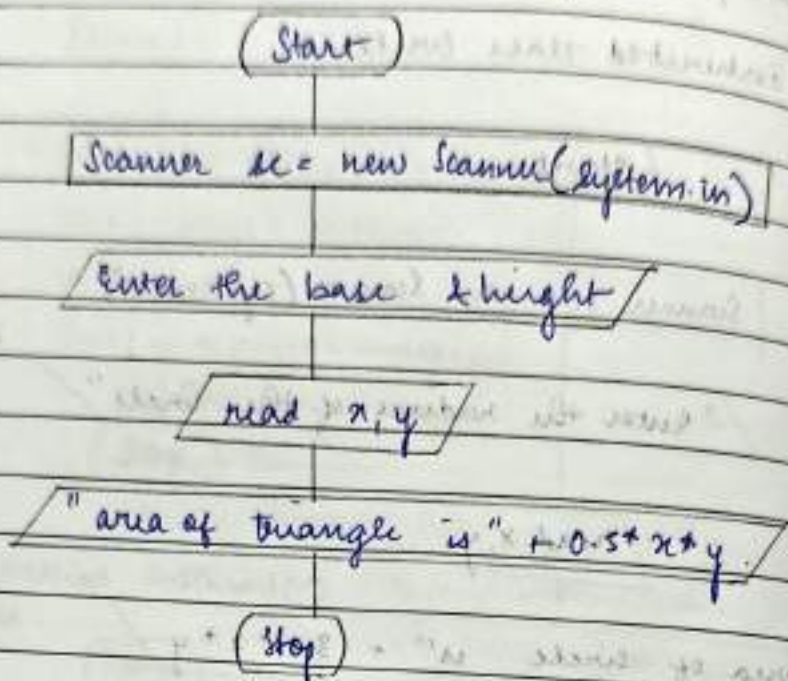 Start
Scanner sc = new Scanner(System.in)
Enter the base & height
read x, y
"area of triangle is" + 0.5* x* y
Stop